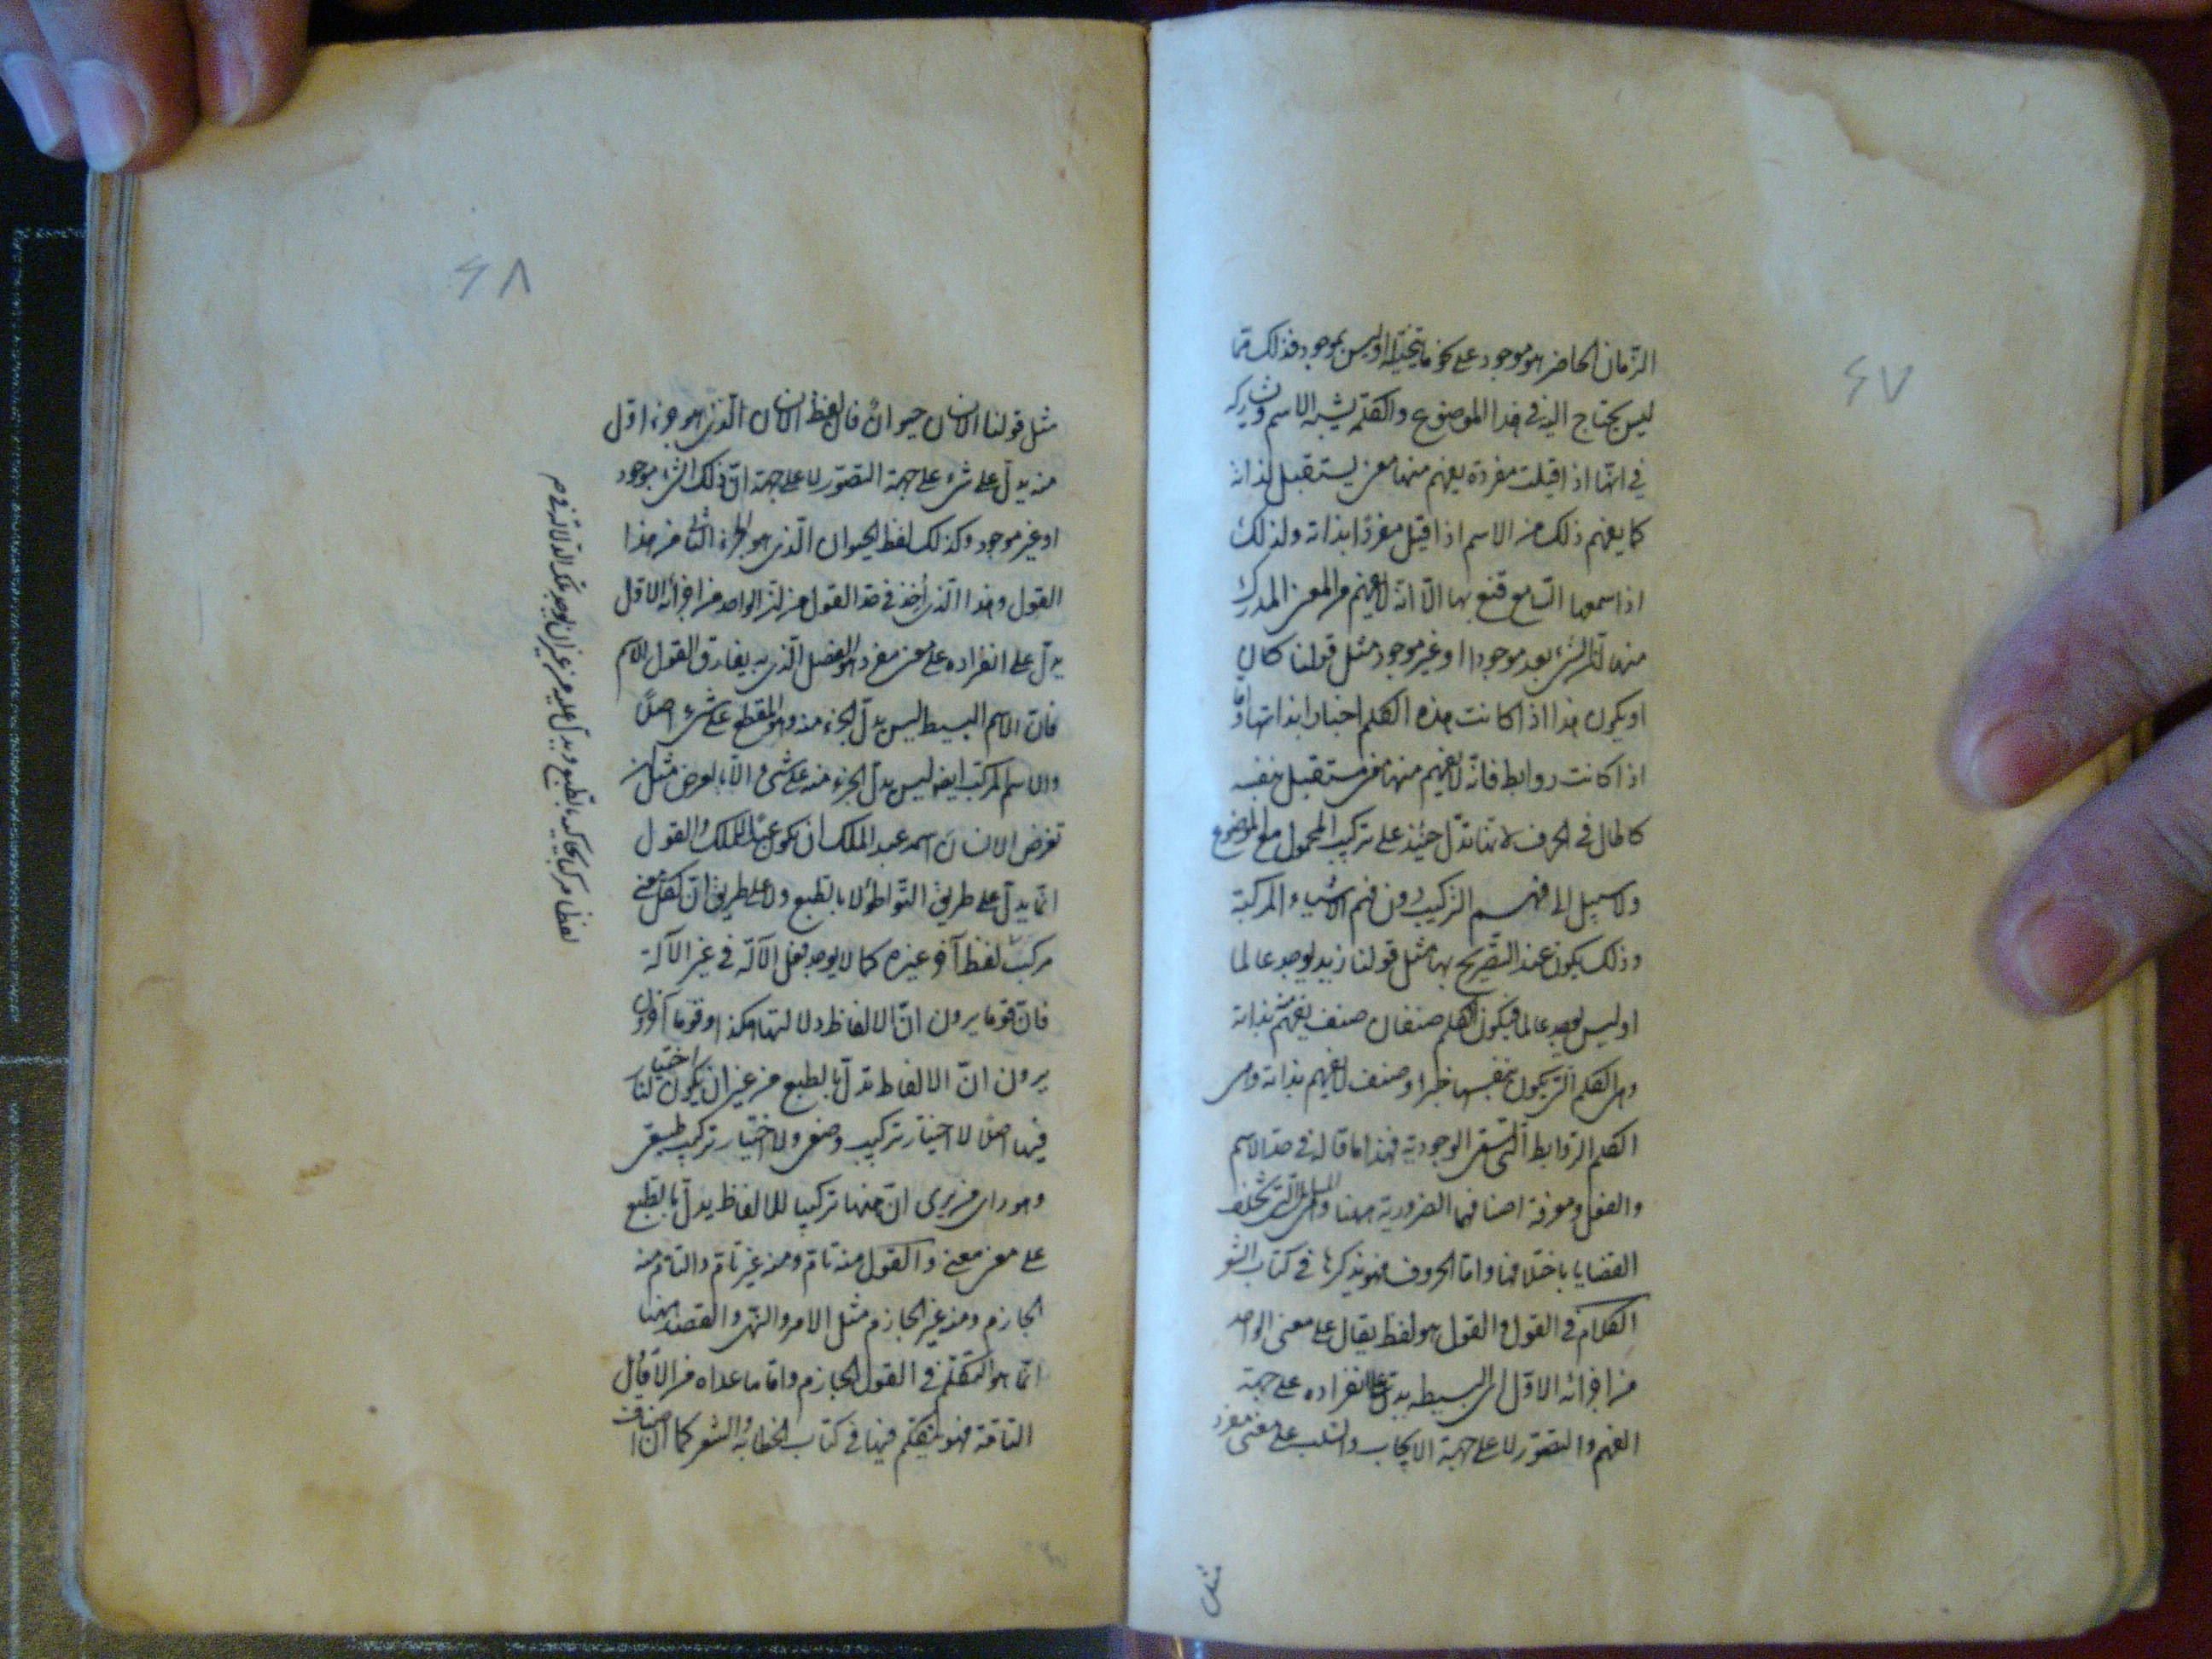 ٤٧
الزمان الحاضر هو موجود على نحو ما يتخيله او ليس بموجود فذلك مما
ليس يحتاج اليه في هذا الموضوع والكلم يشبه الاسم وتشاركه
في انها اذا قيلت مفردة يفهم منها معنى يستقبل لذاته
كما يفهم ذلك من الاسم اذا قيل مفردا بذاته ولذلك
اذا سمعها السامع قنع بها الا انه لا يفهم من المعنى المدرك
منها الشيء بعد موجودا او غير موجود مثل قولنا كان
او يكون هذا اذا كانت هذه الكلم اخبارا بذاتها واما
اذا كانت روابط فانه لا يفهم منها معنى مستقبل بنفسه
كالحال في الحروف لانها تدل حينئذ على تركيب المحمول مع الموضوع
ولا سبيل الى فهم التركيب دون فهم الاشياء المركبة
وذلك يكون عند التصريح بها مثل قولنا زيد يوجد عالما
او ليس يوجد عالما فيكون الكلم صنفان صنف يفهم بذاته
وهي الكلم التي تكون بنفسها خبرا وصنف لا يفهم بذاته وهي
الكلم الروابط التي تسمى الوجودية فهذا ما قاله في حد الاسم
والفعل ومعرفة اصنافهما الضرورية ههنا وهي التي تختلف
القضايا باختلافها واما الحروف فهو يذكرها في كتاب الشعر
الكلام في القول والقول هو لفظ يقال على معنى الواحد
من اجزائه الاول التي البسيطه يدل على انفراده على جهة
الفهم والتصور لا على جهة الايجاب والسلب على معنى مفرد
مثل
٤٨
مثل قولنا الانسان حيوان فان لفظ الانسان الذي هو جزء اول
منه يدل على شيء على جهة التصور لا على جهة ان ذلك الشيء موجود
او غير موجود وكذلك لفظ الحيوان الذي هو الجزء الثاني من هذا
القول وهذا الذي اخذ في حد القول من ان الواحد من اجزائه الاول
يدل على انفراده على معنى مفرد هو الفصل الذي به يفارق القول الاسم
فان الاسم البسيط ليس يدل الجزء منه وهو المقطع على شيء اصلا
والاسم المركب ايضا ليس يدل الجزء منه على شيء الا بالعرض مثل ان
تعرض الانسان اسمه عبد الملك ان يكون عبدا للملك والقول
انما يدل على طريق التواطؤ لا بالطبع ولا على طريق ان لكل معنى
مركب لفظا آخر غيره كما لا يوجد فعل الآلة في غير الآلة
فان قوما يرون ان الالفاظ دلالتها هكذا وقوما آخرون
يرون ان الالفاظ تدل بالطبع من غير ان يكون لنا اختيار
فيها اصلا لا اختيار تركيب وضعي ولا اختيار تركيب طبيعي
وهو راي من يرى ان ههنا تركيبا للالفاظ يدل بالطبع
على معنى معنى والقول منه تام ومنه غير تام والتام منه
الجازم ومنه غير الجازم مثل الامر والنهي والقصد ههنا
انما هو التكلم في القول الجازم واما ما عداه من الاقاويل
التامة فهو يتكلم فيها في كتاب الخطابة والشعر كما ان اصناف
لفظ مركب يحاكيه بالطبع ويدل عليه من غير ان يوجد تلك الدلالة في